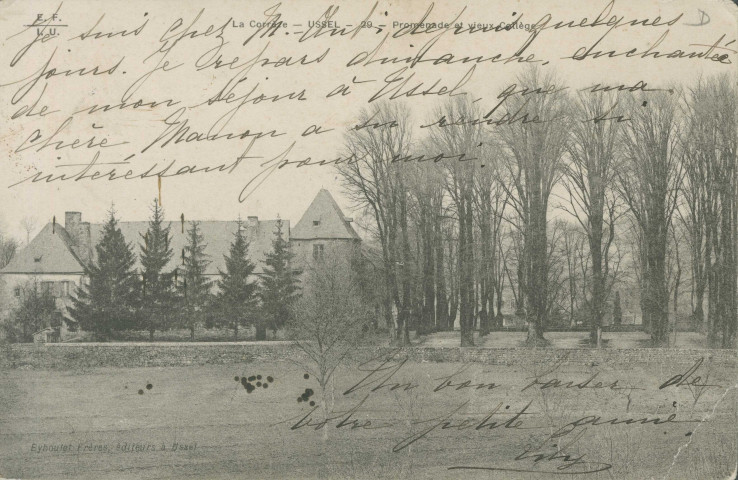 E. F.
L. U.
La Corrèze — USSEL — 29 — Promenade et vieux Collège
D
Je suis chez M. depuis quelques
jours. Je repars dimanche, enchantée
de mon séjour à Ussel, que ma
chère Manon a su rendre si
intéressant pour moi.
Un bon baiser de
votre petite amie
Eyboulet Frères, éditeurs à Ussel